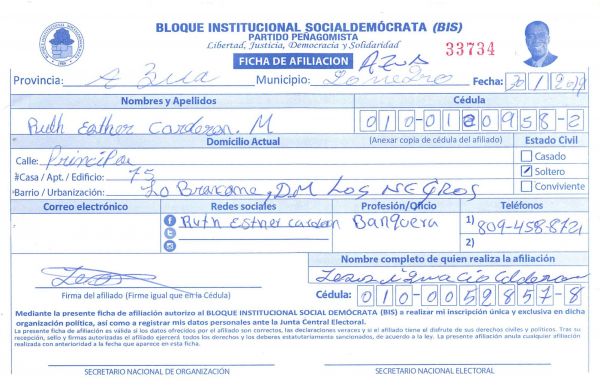 BLOQUE INSTITUCIONAL SOCIALDEMÓCRATA (BIS)
PARTIDO PEÑAGOMISTA
Libertad, Justicia, Democracia y Solidaridad
33734
FICHA DE AFILIACION Azua
Provincia: Azua Municipio: Los Negros Fecha: 30/1/2019
Nombres y Apellidos Cédula
Ruth Esther Carderon. M 010-0120958-2
Domicilio Actual (Anexar copia de cédula del afiliado) Estado Civil
Calle: Principal Casado
#Casa / Apt. / Edificio: 75 Soltero
Barrio / Urbanización: DM LOS NEGROS Conviviente
Correo electrónico Redes sociales Profesión/Oficio Teléfonos
Ruth Esther Carderon Banquera 1) 809-458-8721
2)
Nombre completo de quien realiza la afiliación
Jesus Ignacio Calderon
Firma del afiliado (Firme igual que en la Cédula) Cédula: 010-0052857-8
Mediante la presente ficha de afiliación autorizo al BLOQUE INSTITUCIONAL SOCIAL DEMÓCRATA (BIS) a realizar mi inscripción única y exclusiva en dicha
organización política, así como a registrar mis datos personales ante la Junta Central Electoral.
La presente ficha de afiliación es válida si los datos ofrecidos por el afiliado son correctos, las declaraciones veraces y si el afiliado tiene el disfrute de sus derechos civiles y políticos. Tras su
recepción, sello y firmas autorizadas el afiliado ejercerá todos los derechos y los deberes estatutariamente sancionados, de acuerdo a la ley. La presente afiliación anula cualquier afiliación
realizada con anterioridad a la fecha que aparece en esta ficha.
SECRETARIO NACIONAL DE ORGANIZACIÓN SECRETARIO NACIONAL ELECTORAL